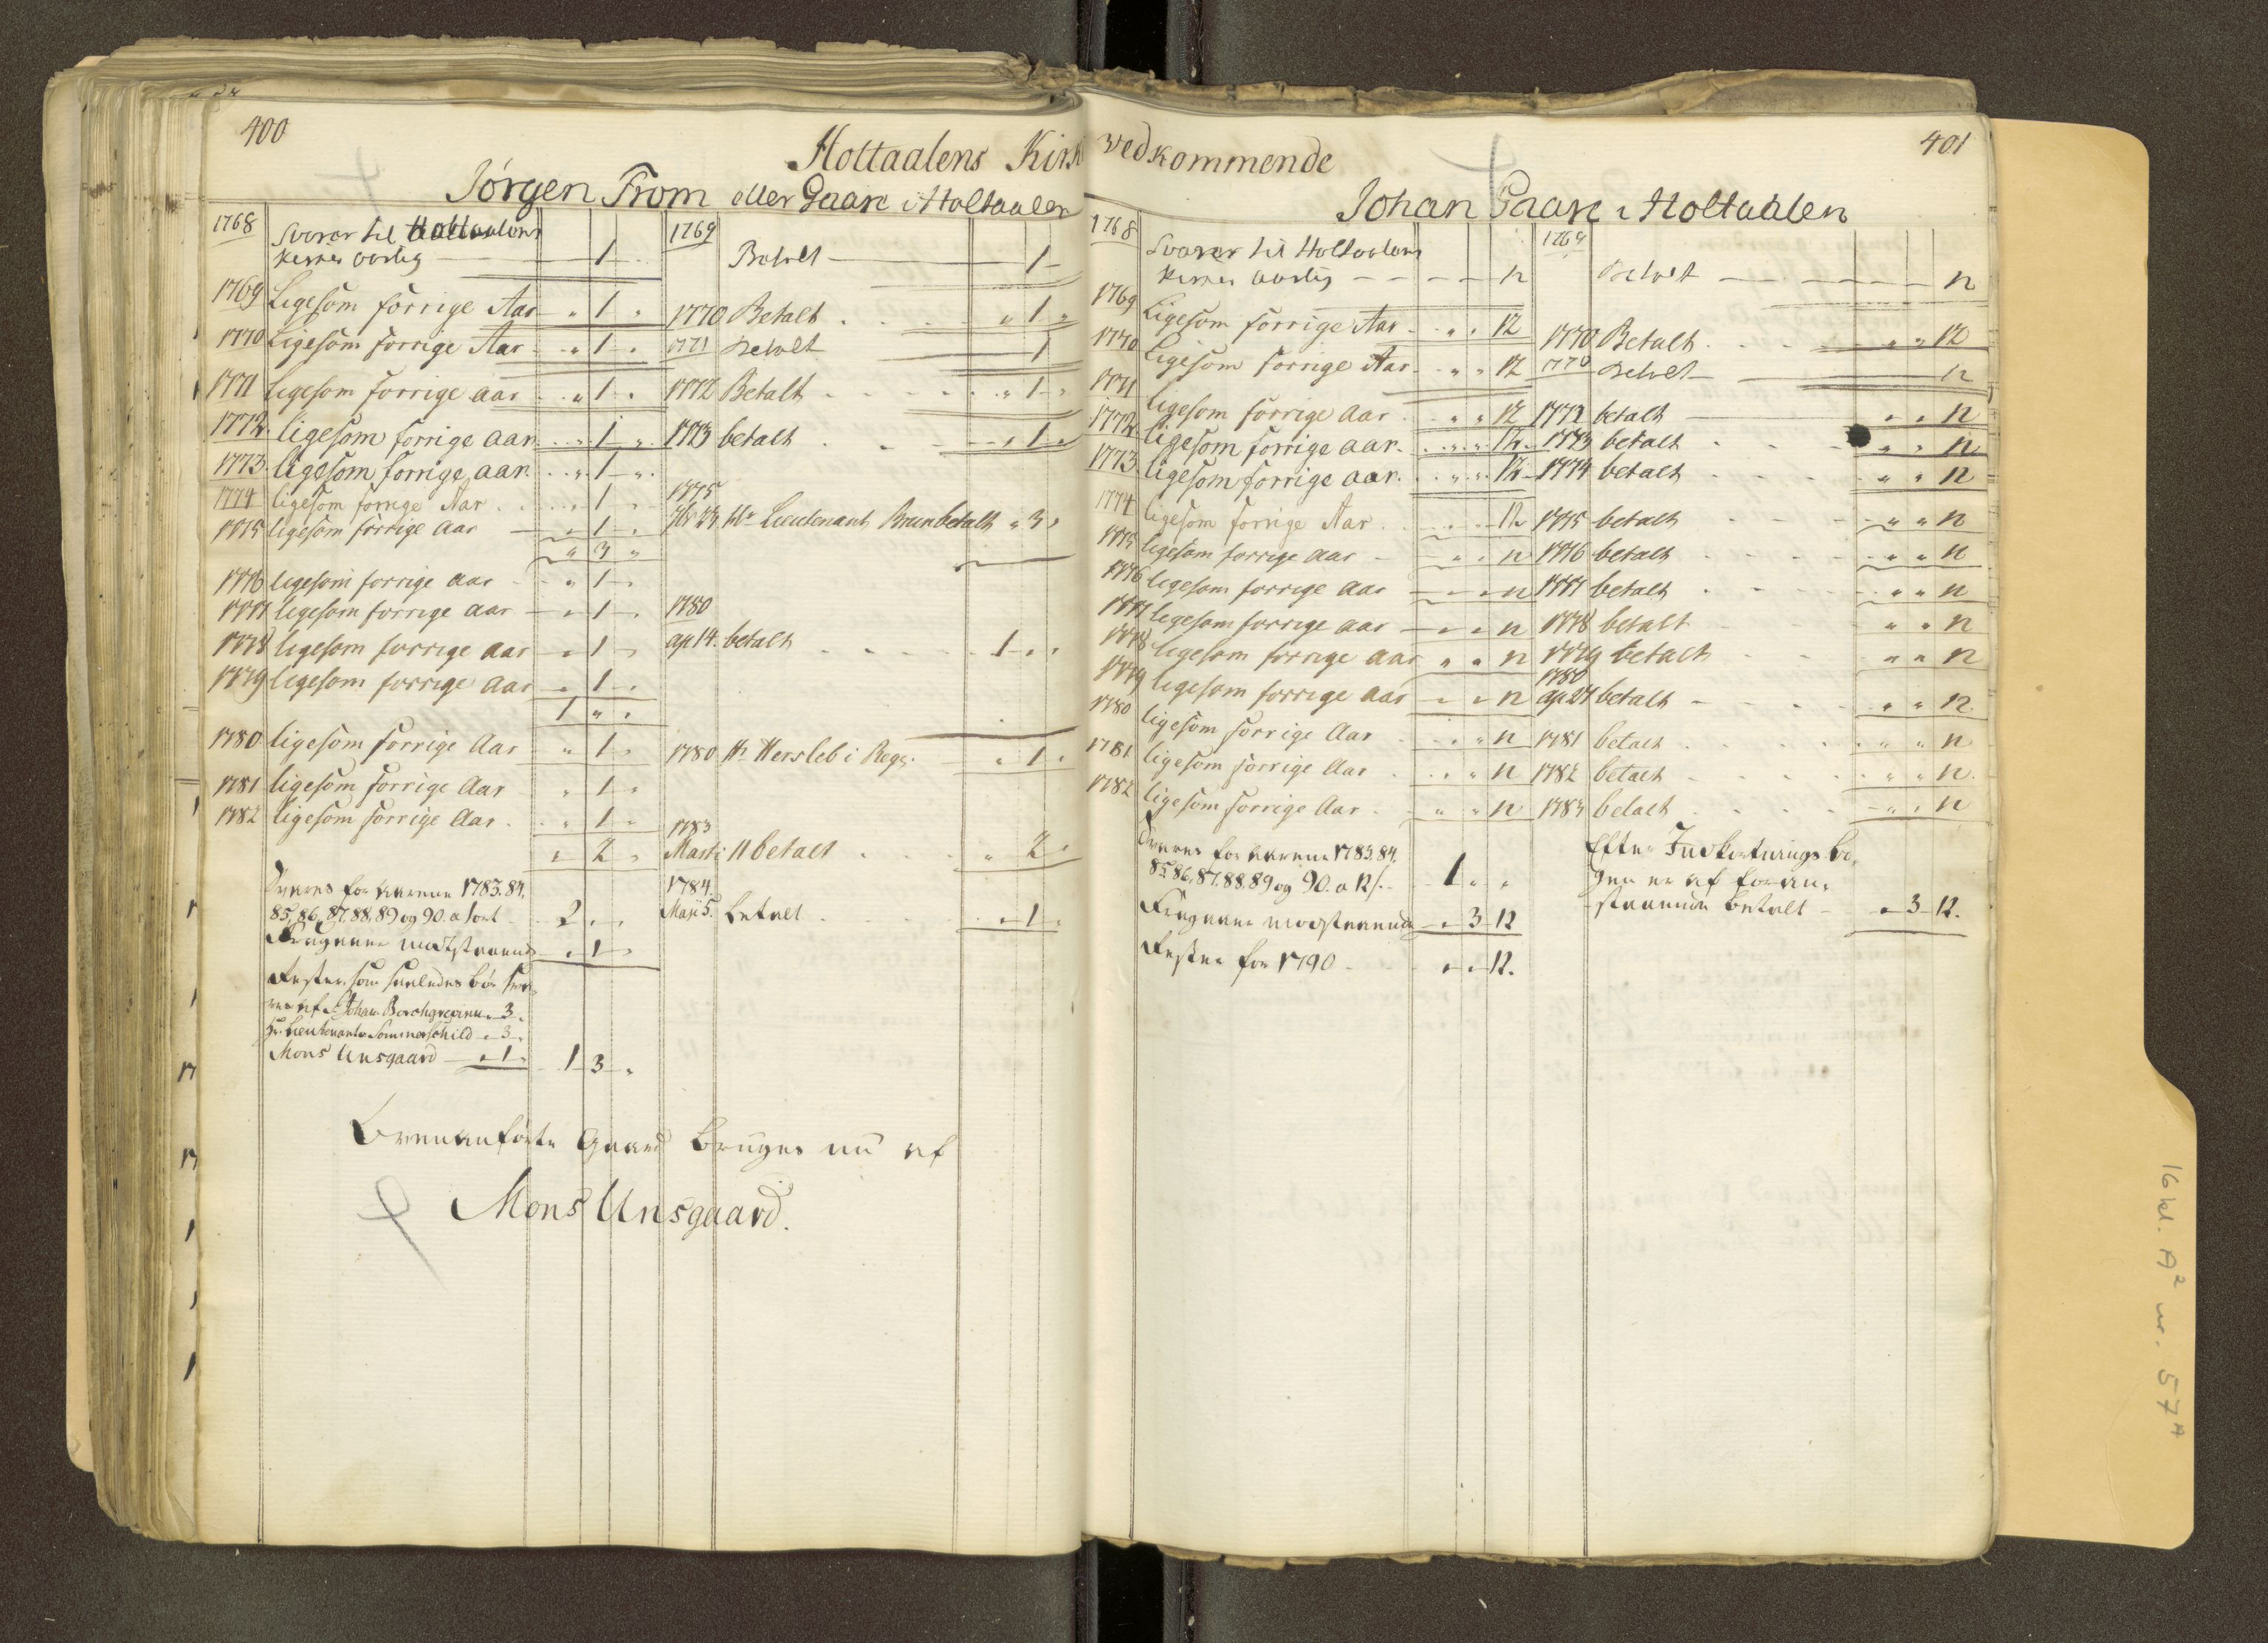 400
Holtaalens Kirk
Jørgen From eller Gaare i Holtaalen
1768 Svarer til Holtaalens
Kerke aarlig — 1
1769 Ligesom forrige Aar „ 1 „
1770 Ligesom forrige Aar „ 1 „
1771 ligesom forrige aar „ 1 „
1772. ligesom forrige aar „ 1 „
1773. ligesom forrige aar. „ 1 „
1774 ligesom forrige Aar „ 1 „
1775 ligesom forrige aar „ 1 „
„ 3 „
1776 ligesom forrige aar „ 1 „
1777 ligesom forrige aar „ 1 „
1778 ligesom forrige aar „ 1 „
1779 ligesom forrige aar „ 1 „
1 „ „
1780 ligesom forrige Aar „ 1 „
1781 ligesom forrige Aar „ 1 „
1782 ligesom forrige Aar. „ 1 „
„ 2 „
Svares for Aarene 1783. 84.
85, 86, 87. 88. 89 og 90. a 1 ort 2 „ „
Fragaaer modstaaende „ 1 „
Rester, som saaledes bør sva-
res af Johan Borchgrevink „ 3 „
Hr. Lieutenant Sommerschild „ 3 „
Mons Unsgaard „ 1 „ 1 3 „
1769 Betalt — 1
1770 Betalt „ 1 „
1771 Betalt 1
1772 Betalt „ 1 „
1773 betalt „ 1 „
1775
23 Hr Lieutenant Brun betalt „ 3 „
1780
ap 14. betalt 1 „ „
1780 Hr Hersleb i Regs: „ 1 „
1783
Marti 11 betalt „ 2 „
1784.
Maji 5. betalt „ 1 „
Ovenanførte Gaard bruges nu af
Mons Unsgaard.
401
vedkommende
Johan Gaare i Holtaalen
1768 Svarer til Holtaalens
Kerke aarlig — 12
1769 Ligesom forrige Aar „ „ 12
1770 Ligesom forrige Aar „ „ 12
1771 ligesom forrige Aar „ „ 12
1772. ligesom forrige aar. „ „ 12.
1773. ligesom forrige aar. „ „ 12
1774 ligesom forrige Aar „ „ 12
1775 ligesom forrige aar „ „ 12
1776 ligesom forrige aar „ „ 12
1777 ligesom forrige aar „ „ 12
1778 ligesom forrige aar „ „ 12
1779 ligesom forrige aar „ „ 12
1780 ligesom forrige Aar „ „ 12
1781 ligesom forrige Aar „ „ 12
1782 ligesom forrige Aar „ „ 12
Svares for Aarene 1783. 84.
85. 86. 87. 88. 89 og 90. a 12 s. 1 „ „
Fragaaer modstaaende „ 3 12
Rester for 1790 „ „ 12.
1769 Betalt — 12
1770 Betalt „ „ 12
1770 Betalt 12
1772 betalt „ „ 12
1773 betalt „ „ 12.
1774 betalt „ „ 12
1775 betalt „ „ 12
1776 betalt „ „ 12
1777 betalt „ „ 12
1778 betalt „ „ 12
1779 betalt „ „ 12
1780
ap 24 betalt „ „ 12.
1781 betalt „ „ 12
1782 betalt „ „ 12.
1783 betalt „ „ 12
Efter bo-
gen er af foran-
staaende betalt „ 3 12.
16 kl. A² nr. 57ᴬ